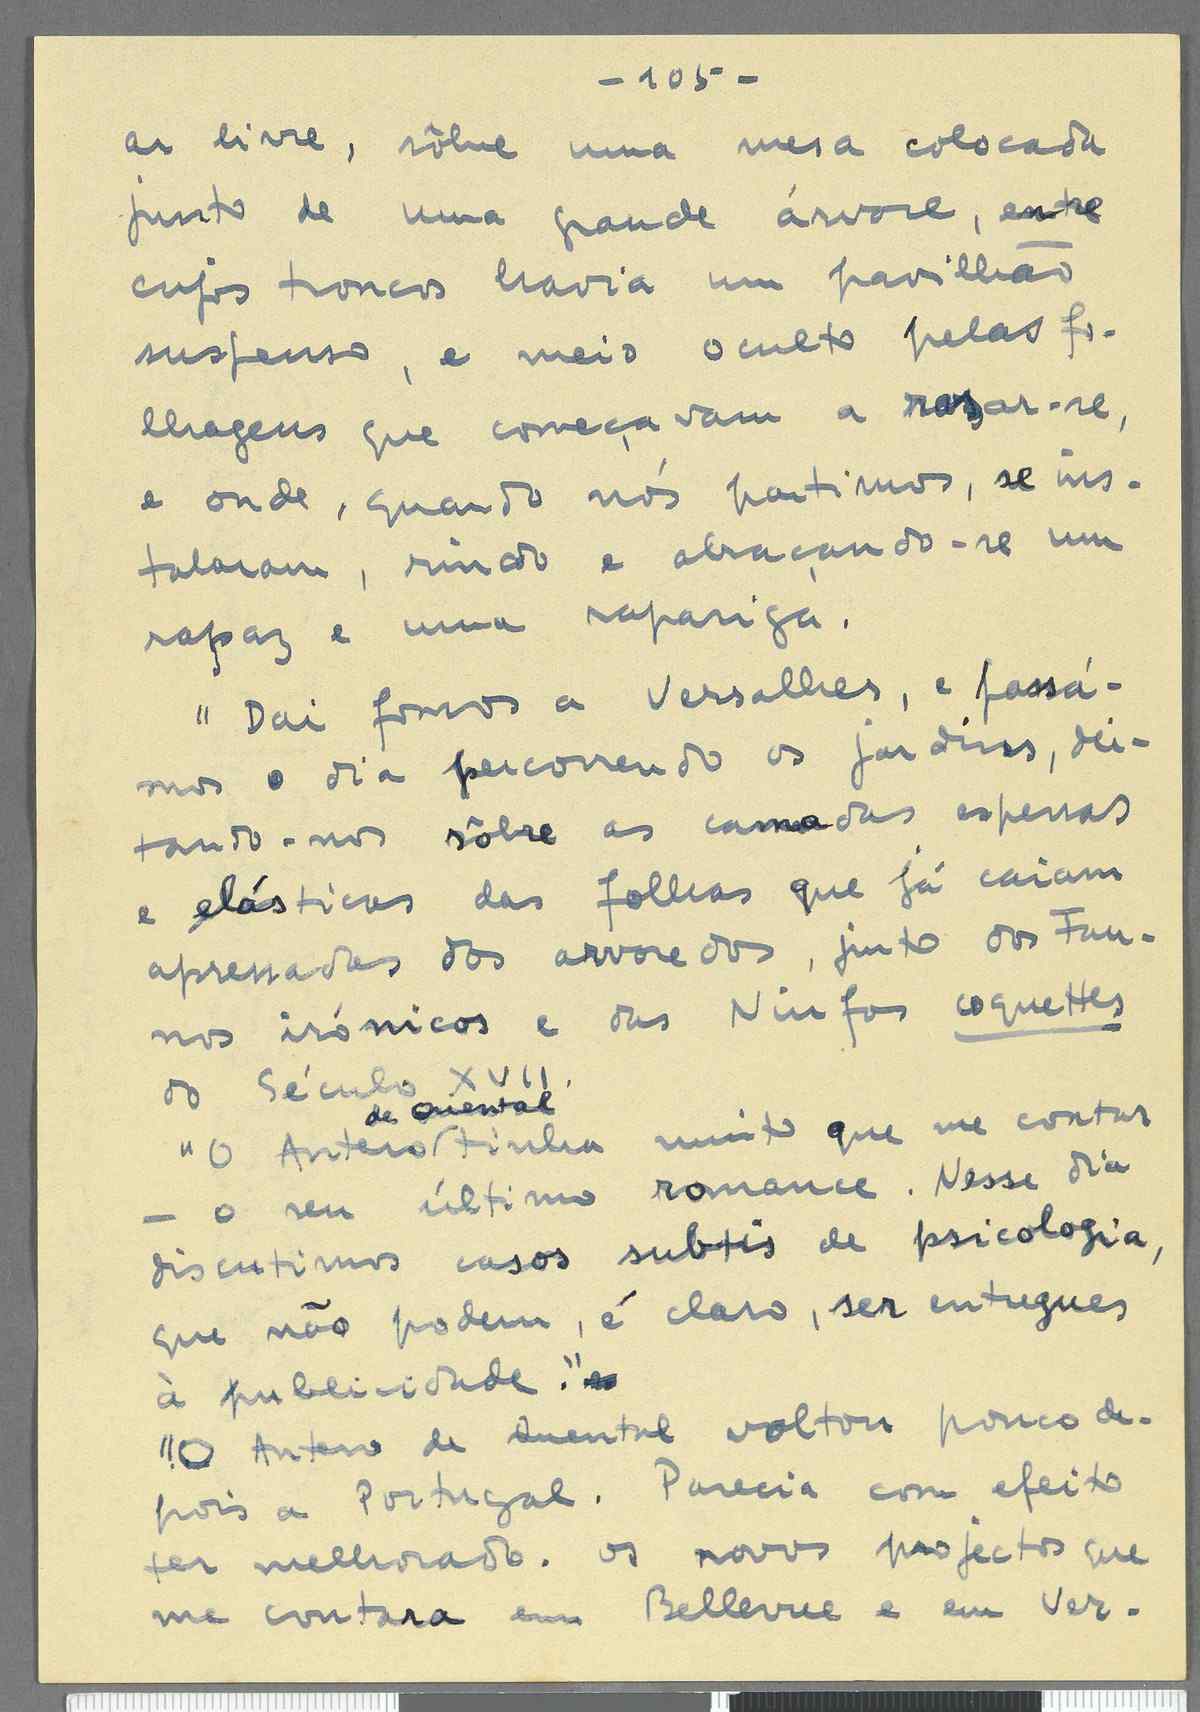 - 105 -
ar livre, sôbre uma mesa colocada
junto de uma grande árvore, entre
cujos troncos havia um pavilhão
suspenso, e meio oculto pelas fo-
lhagens que começavam a rosar-se,
e onde, quando nós partimos, se ins-
talaram, rindo e abraçando-se um
rapaz e uma rapariga.
"Dai fomos a Versalhes, e passá-
mos o dia percorrendo os jardins, dei-
tando-nos sôbre as camadas espessas
e elásticas das folhas que já caiam
apressadas dos arvoredos, junto dos Fau-
nos irónicos e das Ninfas coquettes
do Século XVII.
de Quental
"O Antero tinha muito que me contar
- o seu último romance. Nesse dia
discutimos casos subtis de psicologia,
que não podem, é claro, ser entregues
à publicidade."
"O Antero de Quental voltou pouco de-
pois a Portugal. Parecia com efeito
ter melhorado. Os novos projectos que
me contara em Bellevue e em Ver-